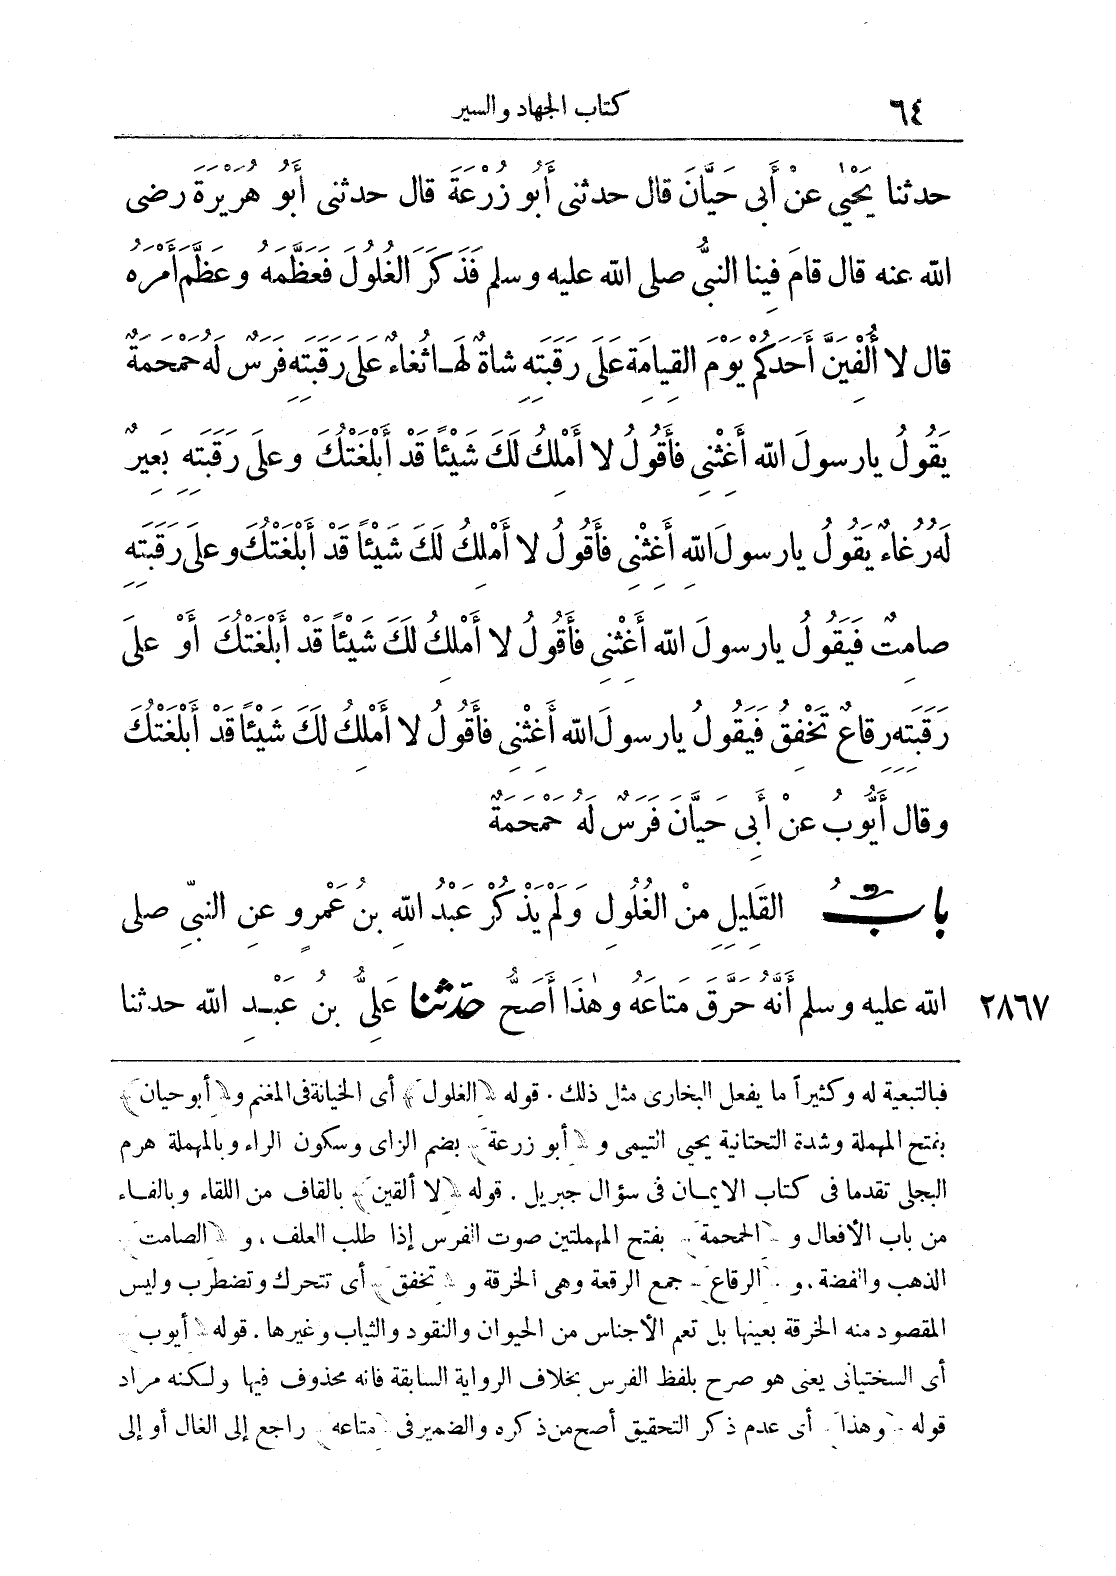 ٦٤ كتاب الجهاد والسير
حدثنا يَحْيٰى عنْ أَبى حَيَّانَ قال حدثنى أَبُو زُرْعَةَ قال حدثنى أَبُو هُرَيْرَةَ رضى
اللّه عنه قال قامَ فِينا النبىُّ صلى اللّه عليه وسلم فَذَكَرَ الغُلُولَ فَعَظَّمَهُ وعَظَّمَ أَمْرَه
قال لا أُلْفِيَنَّ أَحَدَكُمْ يَوْمَ القِيامَةِ عَلَى رَقَبَتِهِ شاةٌ لَهَا ثُغاءٌ عَلَى رَقَبَتِهِ فَرَسٌ لَهُ حَمْحَمَةٌ
يَقُولُ يارسولَ اللّه أَغِثْنِى فأَقُولُ لا أَمْلِكُ لَكَ شَيْئًا قَدْ أَبْلَغْتُكَ وعلَى رَقَبَتِهِ بَعِيرٌ
لَهُ رُغاءٌ يَقُولُ يارسولَ اللّهِ أَغِثْنِى فأَقُولُ لا أَمْلِكُ لَكَ شَيْئًا قَدْ أَبْلَغْتُكَ وعلَى رَقَبَتِهِ
صامِتٌ فَيَقُولُ يارسولَ اللّه أَغِثْنِى فأَقُولُ لا أَمْلِكُ لَكَ شَيْئًا قَدْ أَبْلَغْتُكَ أَوْ علَى
رَقَبَتِهِ رِقاعٌ تَخْفِقُ فَيَقُولُ يارسولَ اللّه أَغِثْنِى فأَقُولُ لا أَمْلِكُ لَكَ شَيْئًا قَدْ أَبْلَغْتُكَ
وقال أَيُّوبُ عنْ أَبِى حَيَّانَ فَرَسٌ لَهُ حَمْحَمَةٌ
بابُ القَلِيلِ مِنْ الغُلُولِ وَلَمْ يَذْكُرْ عَبْدُ اللّهِ بنُ عَمْرٍو عنِ النبىِّ صلى
اللّه عليه وسلم أَنَّهُ حَرَّقَ مَتاعَهُ وهٰذَا أَصَحُّ حدّثنا عَلِىُّ بنُ عَبْدِ اللّه حدثنا ٢٨٦٧
فبالتبعية له وكثيراً ما يفعل البخارى مثل ذلك . قوله ﴿الغلول﴾ أى الخيانة فى المغنم و﴿أبو حيان﴾
بفتح المهملة وشدة التحتانية يحيى التيمى و ﴿أبو زرعة﴾ بضم الزاى وسكون الراء وبالمهملة هرم
البجلى تقدما فى كتاب الايمان فى سؤال جبريل . قوله ﴿لا ألقين﴾ بالقاف من اللقاء وبالفاء
من باب الأفعال و ﴿الحمحمة﴾ بفتح المهملتين صوت الفرس إذا طلب العلف ، و ﴿الصامت﴾
الذهب والفضة . و ﴿الرقاع﴾ جمع الرقعة وهى الخرقة و ﴿تخفق﴾ أى تتحرك وتضطرب وليس
المقصود منه الخرقة بعينها بل تعم الأجناس من الحيوان والنقود والثياب وغيرها . قوله ﴿أيوب﴾
أى السختيانى يعنى هو صرح بلفظ الفرس بخلاف الرواية السابقة فانه محذوف فيها ولكنه مراد
قوله ﴿وهذا﴾ أى عدم ذكر التحقيق أصح من ذكره والضمير فى ﴿متاعه﴾ راجع إلى الغال أو إلى